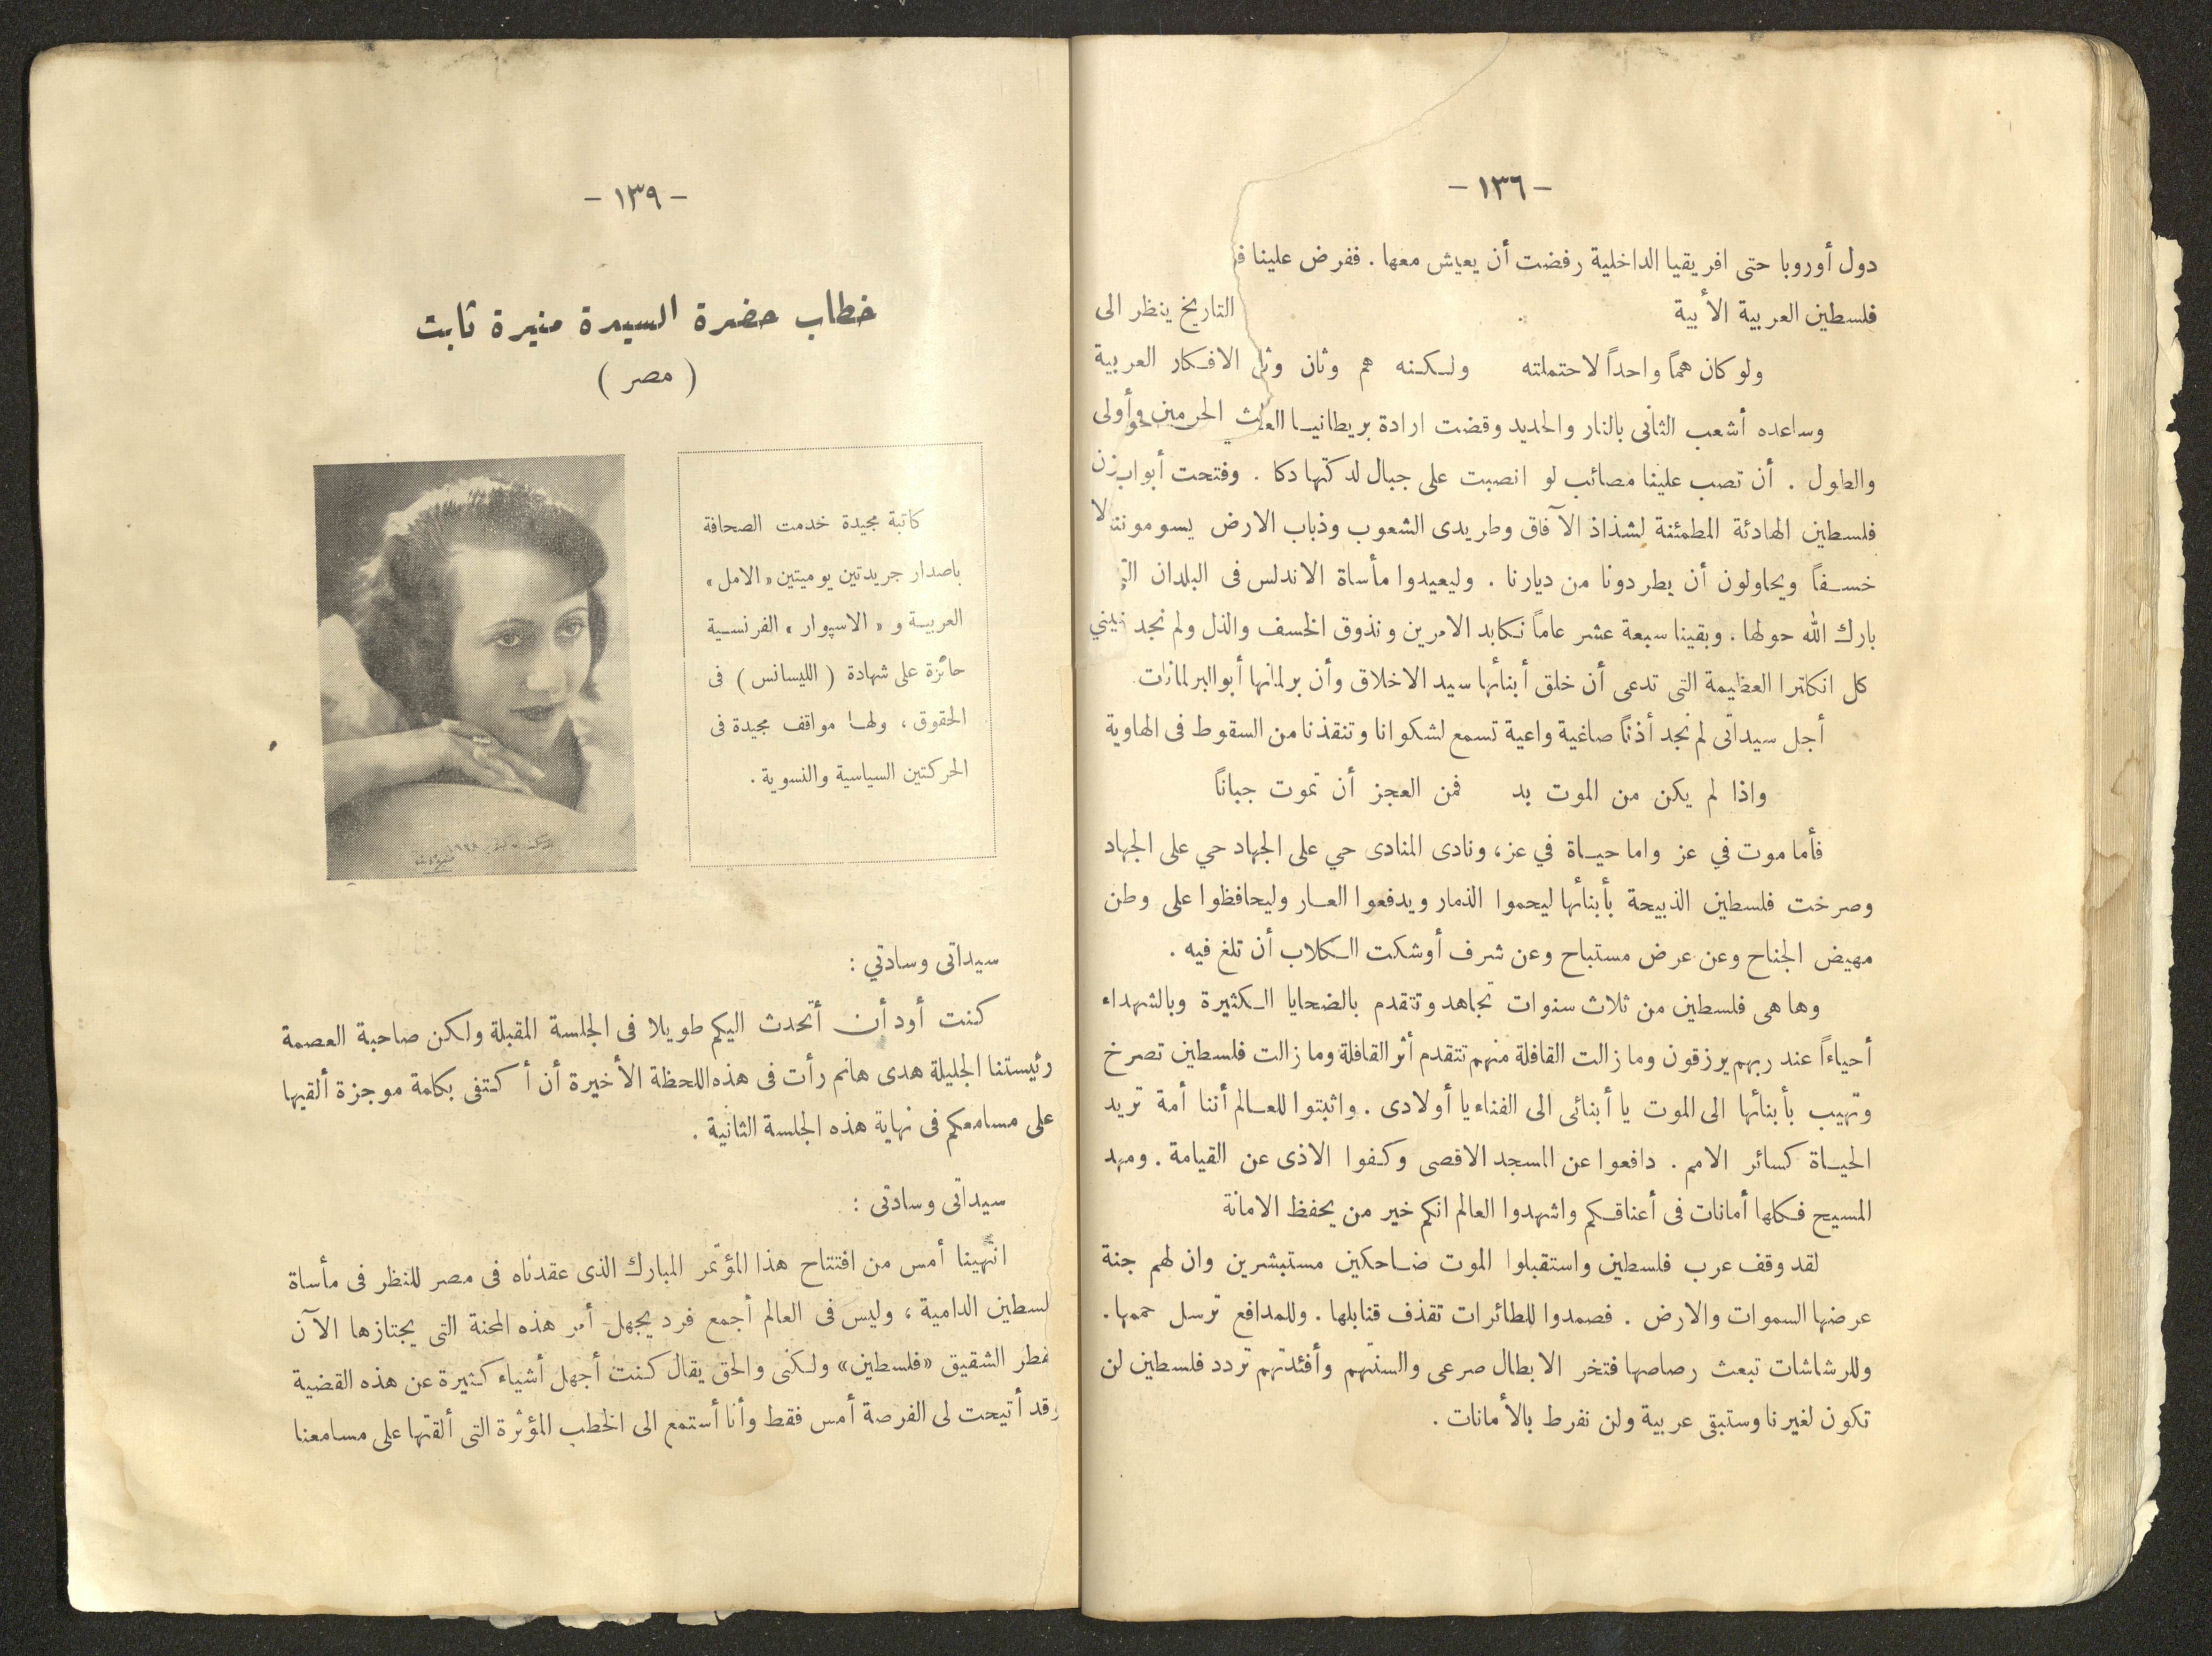 - ١٣٦ -
دول أوروبا حتى افريقيا الداخلية رفضت أن يعيش معها . ففرض علينا
فلسطين العربية الأبية التاريخ ينظر الى
ولو كان هماً واحداً لاحتملته ولكنه هم وثان الافكار العربية
وساعده أشعب الثانى بالنار والحديد وقضت ارادة بريطانيا الحرمين وأولى
والطول . أن تصب علينا مصائب لو انصبت على جبال لدكتها دكا . وفتحت أبواب
فلسطين الهادئة المطمئنة لشذاذ الآفاق وطريدى الشعوب وذباب الارض
خسفاً ويحاولون أن يطردونا من ديارنا . وليعيدوا مأساة الاندلس فى البلدان
بارك الله حولها . وبقينا سبعة عشر عاماً نكابد الامرين ونذوق الخسف والذل ولم نجد
كل انكلترا العظيمة التى تدعى أن خلق أبنائها سيد الاخلاق وأن برلمانها أبو البرلمانات
أجل سيداتى لم نجد أذناً صاغية واعية تسمع لشكوانا وتنقذنا من السقوط فى الهاوية
واذا لم يكن من الموت بد فمن العجز أن تموت جباناً
فأما موت في عز واما حياة في عز، ونادى المنادى حي على الجهاد حي على الجهاد
وصرخت فلسطين الذبيحة بأبنائها ليحموا الذمار ويدفعوا العار وليحافظوا على وطن
مهيض الجناح وعن عرض مستباح وعن شرف أوشكت الكلاب أن تلغ فيه .
وها هى فلسطين من ثلاث سنوات تجاهد وتتقدم بالضحايا الكثيرة وبالشهداء
أحياءاً عند ربهم يرزقون وما زالت القافلة منهم تتقدم أثر القافلة وما زالت فلسطين تصرخ
وتهيب بأبنائها الى الموت يا أبنائى الى الفناء يا أولادى . واثبتوا للعالم أننا أمة تريد
الحياة كسائر الامم . دافعوا عن المسجد الاقصى وكفوا الاذى عن القيامة . ومهد
المسيح فكلها أمانات فى أعناقكم واشهدوا العالم انكم خير من يحفظ الامانة
لقد وقف عرب فلسطين واستقبلوا الموت ضاحكين مستبشرين وان لهم جنة
عرضها السموات والارض . فصمدوا للطائرات تقذف قنابلها . وللمدافع ترسل حممها .
وللرشاشات تبعث رصاصها فتخر الابطال صرعى والسنتهم وأفئدتهم تردد فلسطين لن
تكون لغيرنا وستبقى عربية ولن نفرط بالأمانات .
- ١٣٩ -
خطاب حضرة السيدة منيرة ثابت
( مصر )
كاتبة مجيدة خدمت الصحافة
باصدار جريدتين يوميتين « الامل »
العربية و « الاسپوار » الفرنسية
حائزة على شهادة ( الليسانس ) فى
الحقوق ، ولها مواقف مجيدة فى
الحركتين السياسية والنسوية .
سيداتى وسادتي :
كنت أود أن أتحدث اليكم طويلا فى الجلسة المقبلة ولكن صاحبة العصمة
رئيستنا الجليلة هدى هانم رأت فى هذه اللحظة الأخيرة أن أكتفى بكلمة موجزة ألقيها
على مسامعكم فى نهاية هذه الجلسة الثانية .
سيداتى وسادتى :
انتهينا أمس من افتتاح هذا المؤتمر المبارك الذى عقدناه فى مصر للنظر فى مأساة
لسطين الدامية ، وليس فى العالم أجمع فرد يجهل أمر هذه المحنة التى يجتازها الآن
الشقيق «فلسطين» ولكنى والحق يقال كنت أجهل أشياء كثيرة عن هذه القضية
وقد أتيحت لى الفرصة أمس فقط وأنا أستمع الى الخطب المؤثرة التى ألقتها على مسامعنا